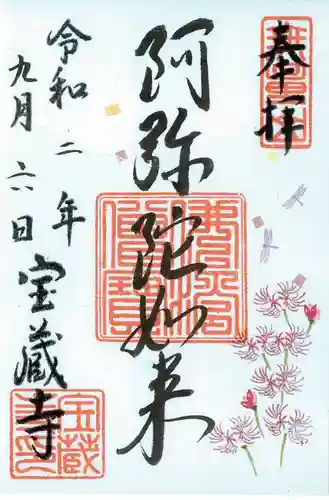 奉拝
阿弥陀如来
令和二年
九月六日
宝蔵寺